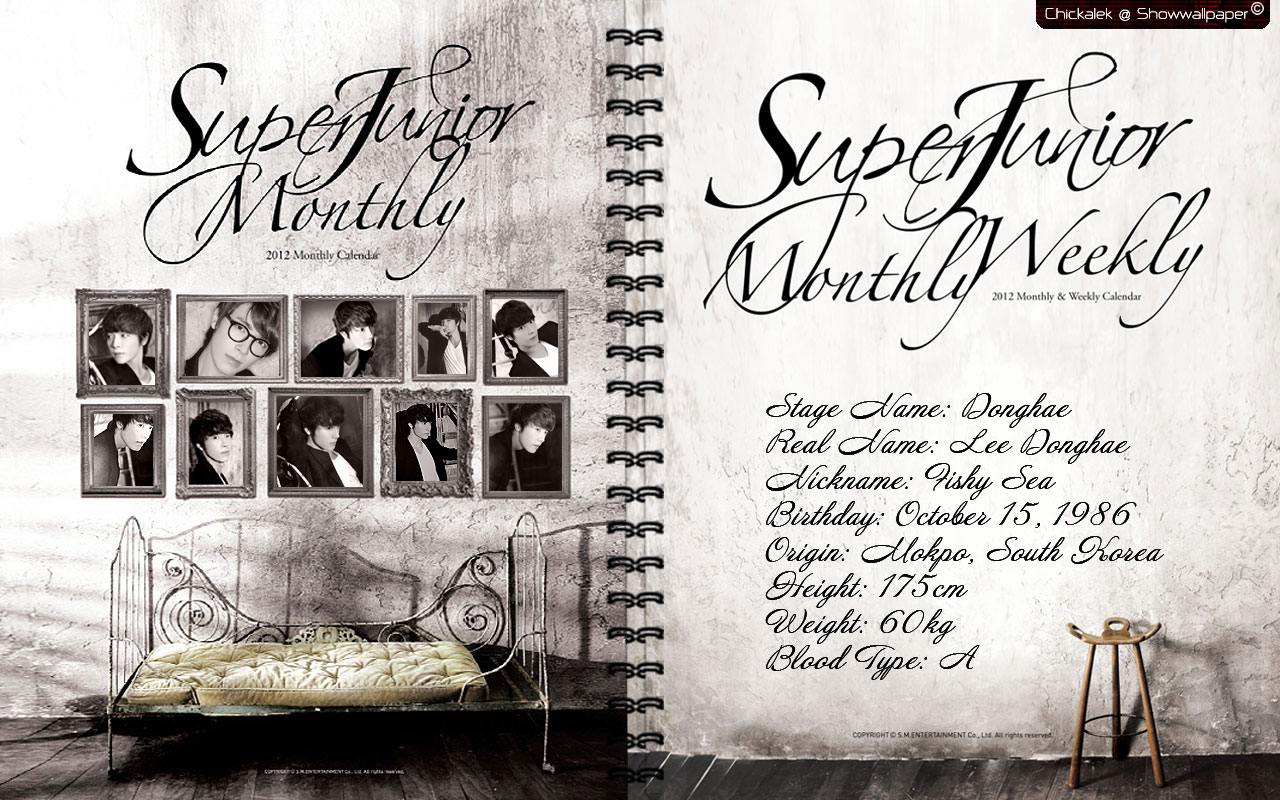 Chickalek @ Showwallpaper©
Super Junior
Monthly
2012 Monthly Calendar
COPYRIGHT © S.M.ENTERTAINMENT Co., Ltd. All rights reserved.
Super Junior
Monthly Weekly
2012 Monthly & Weekly Calendar
Stage Name: Donghae
Real Name: Lee Donghae
Nickname: Fishy Sea
Birthday: October 15, 1986
Origin: Mokpo, South Korea
Height: 175cm
Weight: 60kg
Blood Type: A
COPYRIGHT © S.M.ENTERTAINMENT Co., Ltd. All rights reserved.